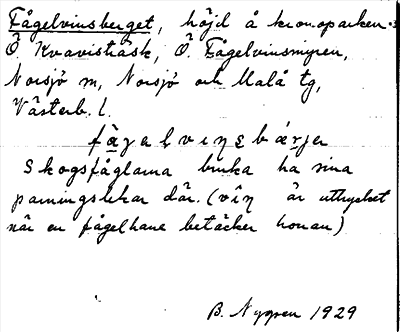 Fågelvinsberget, höjd å kronoparken
Ö Kvavisträsk, Ö. Fågelvinsmyren,
Norsjö m, Norsjö och Malå tg,
Västerb. l.
fågelvinsbärjer
Skogsfåglarna bruka ha sina
parningslekar där. (vîn är uttrycket
när en fågelhane betäcker honan)
B. Nygren 1929